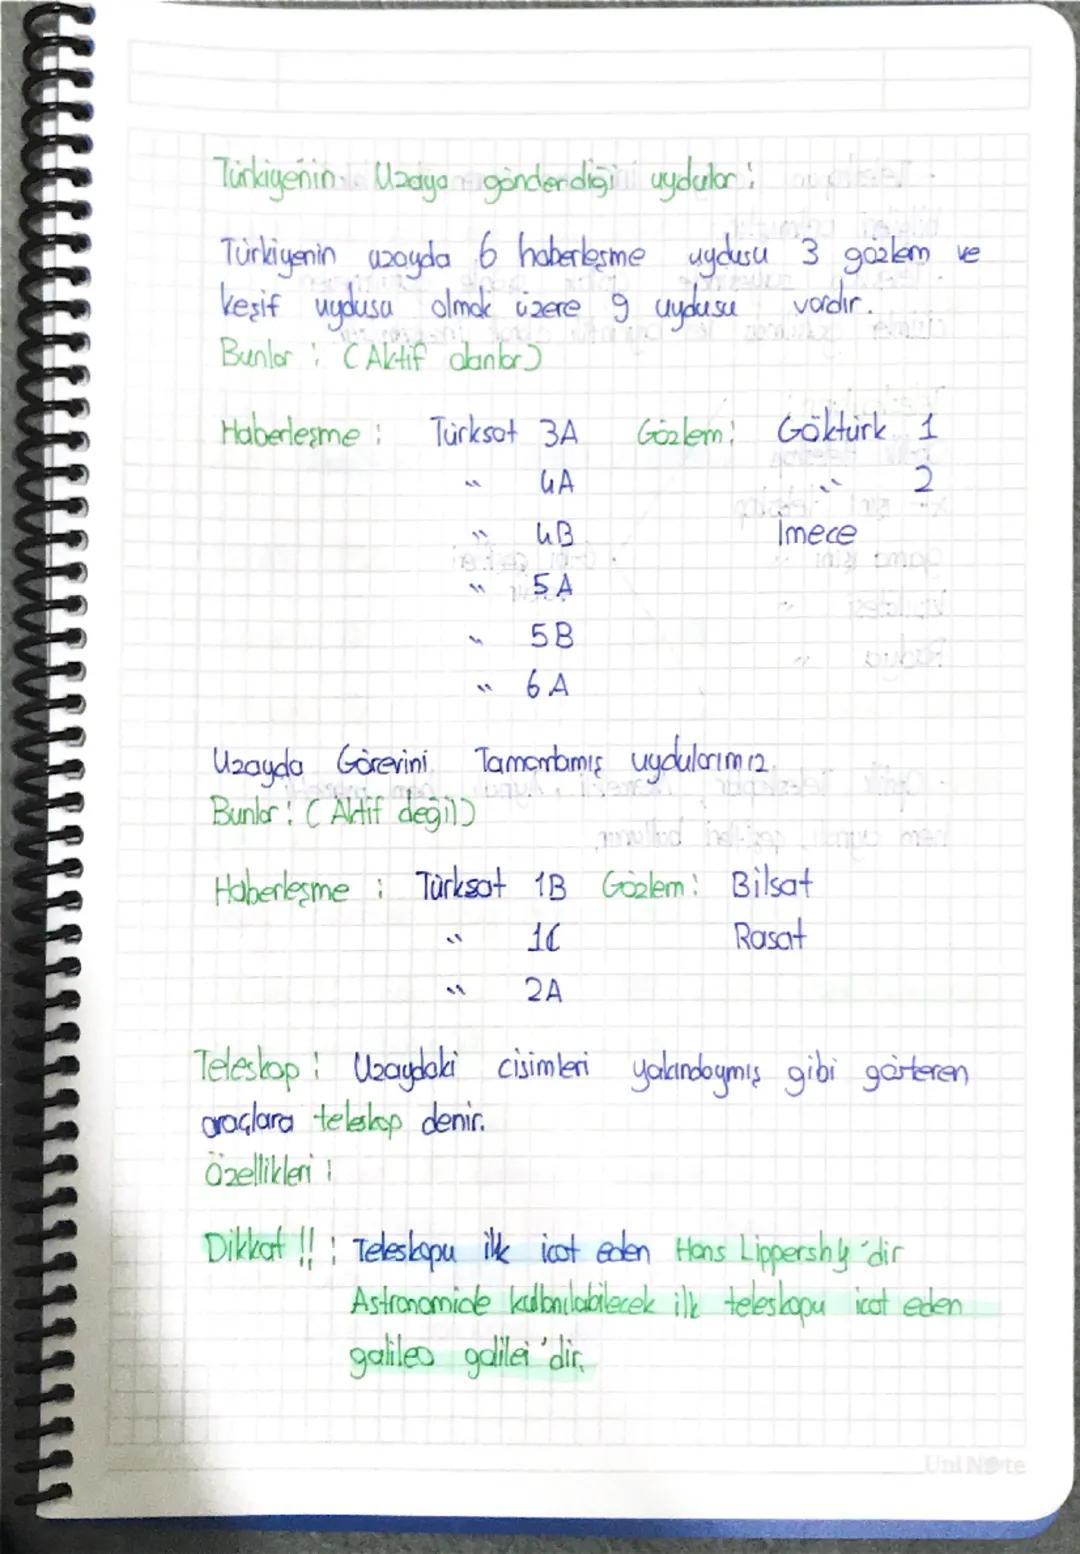 Türkiyenin Uzaya gönderdiği uydular :
Türkiyenin uzayda 6 haberleşme uydusu 3 gözlem ve
keşif uydusu olmak üzere 9 uydusu vardır.
Bunlar : (Aktif olanlar)
Haberleşme : Türksat 3A Gözlem : Göktürk 1
" 4A " 2
" 4B İmece
" 5A
" 5B
" 6A
Uzayda Görevini Tamamlamış uydularımız.
Bunlar : (Aktif değil)
Haberleşme : Türksat 1B Gözlem : Bilsat
" 1C Rasat
" 2A
Teleskop : Uzaydaki cisimleri yakındaymış gibi gösteren
araçlara teleskop denir.
Özellikleri :
Dikkat !! : Teleskopu ilk icat eden Hans Lippershy 'dir
Astronomide kullanılabilecek ilk teleskopu icat eden
galileo galilei 'dir.
UniNote